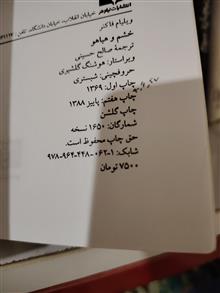 انتشارات نیلوفر خیابان انقلاب، خیابان دانشگاه، تلفن:
ویلیام فاکنر
خشم و هیاهو
ترجمهٔ صالح حسینی
ویراستار: هوشنگ گلشیری
حروفچینی: شبستری
چاپ اول: ۱۳۶۹
چاپ هفتم: پاییز ۱۳۸۸
چاپ گلشن
شمارگان: ۱۶۵۰ نسخه
حق چاپ محفوظ است.
شابک: ۱-۰۶۲-۴۴۸-۹۶۴-۹۷۸
۷۵۰۰ تومان